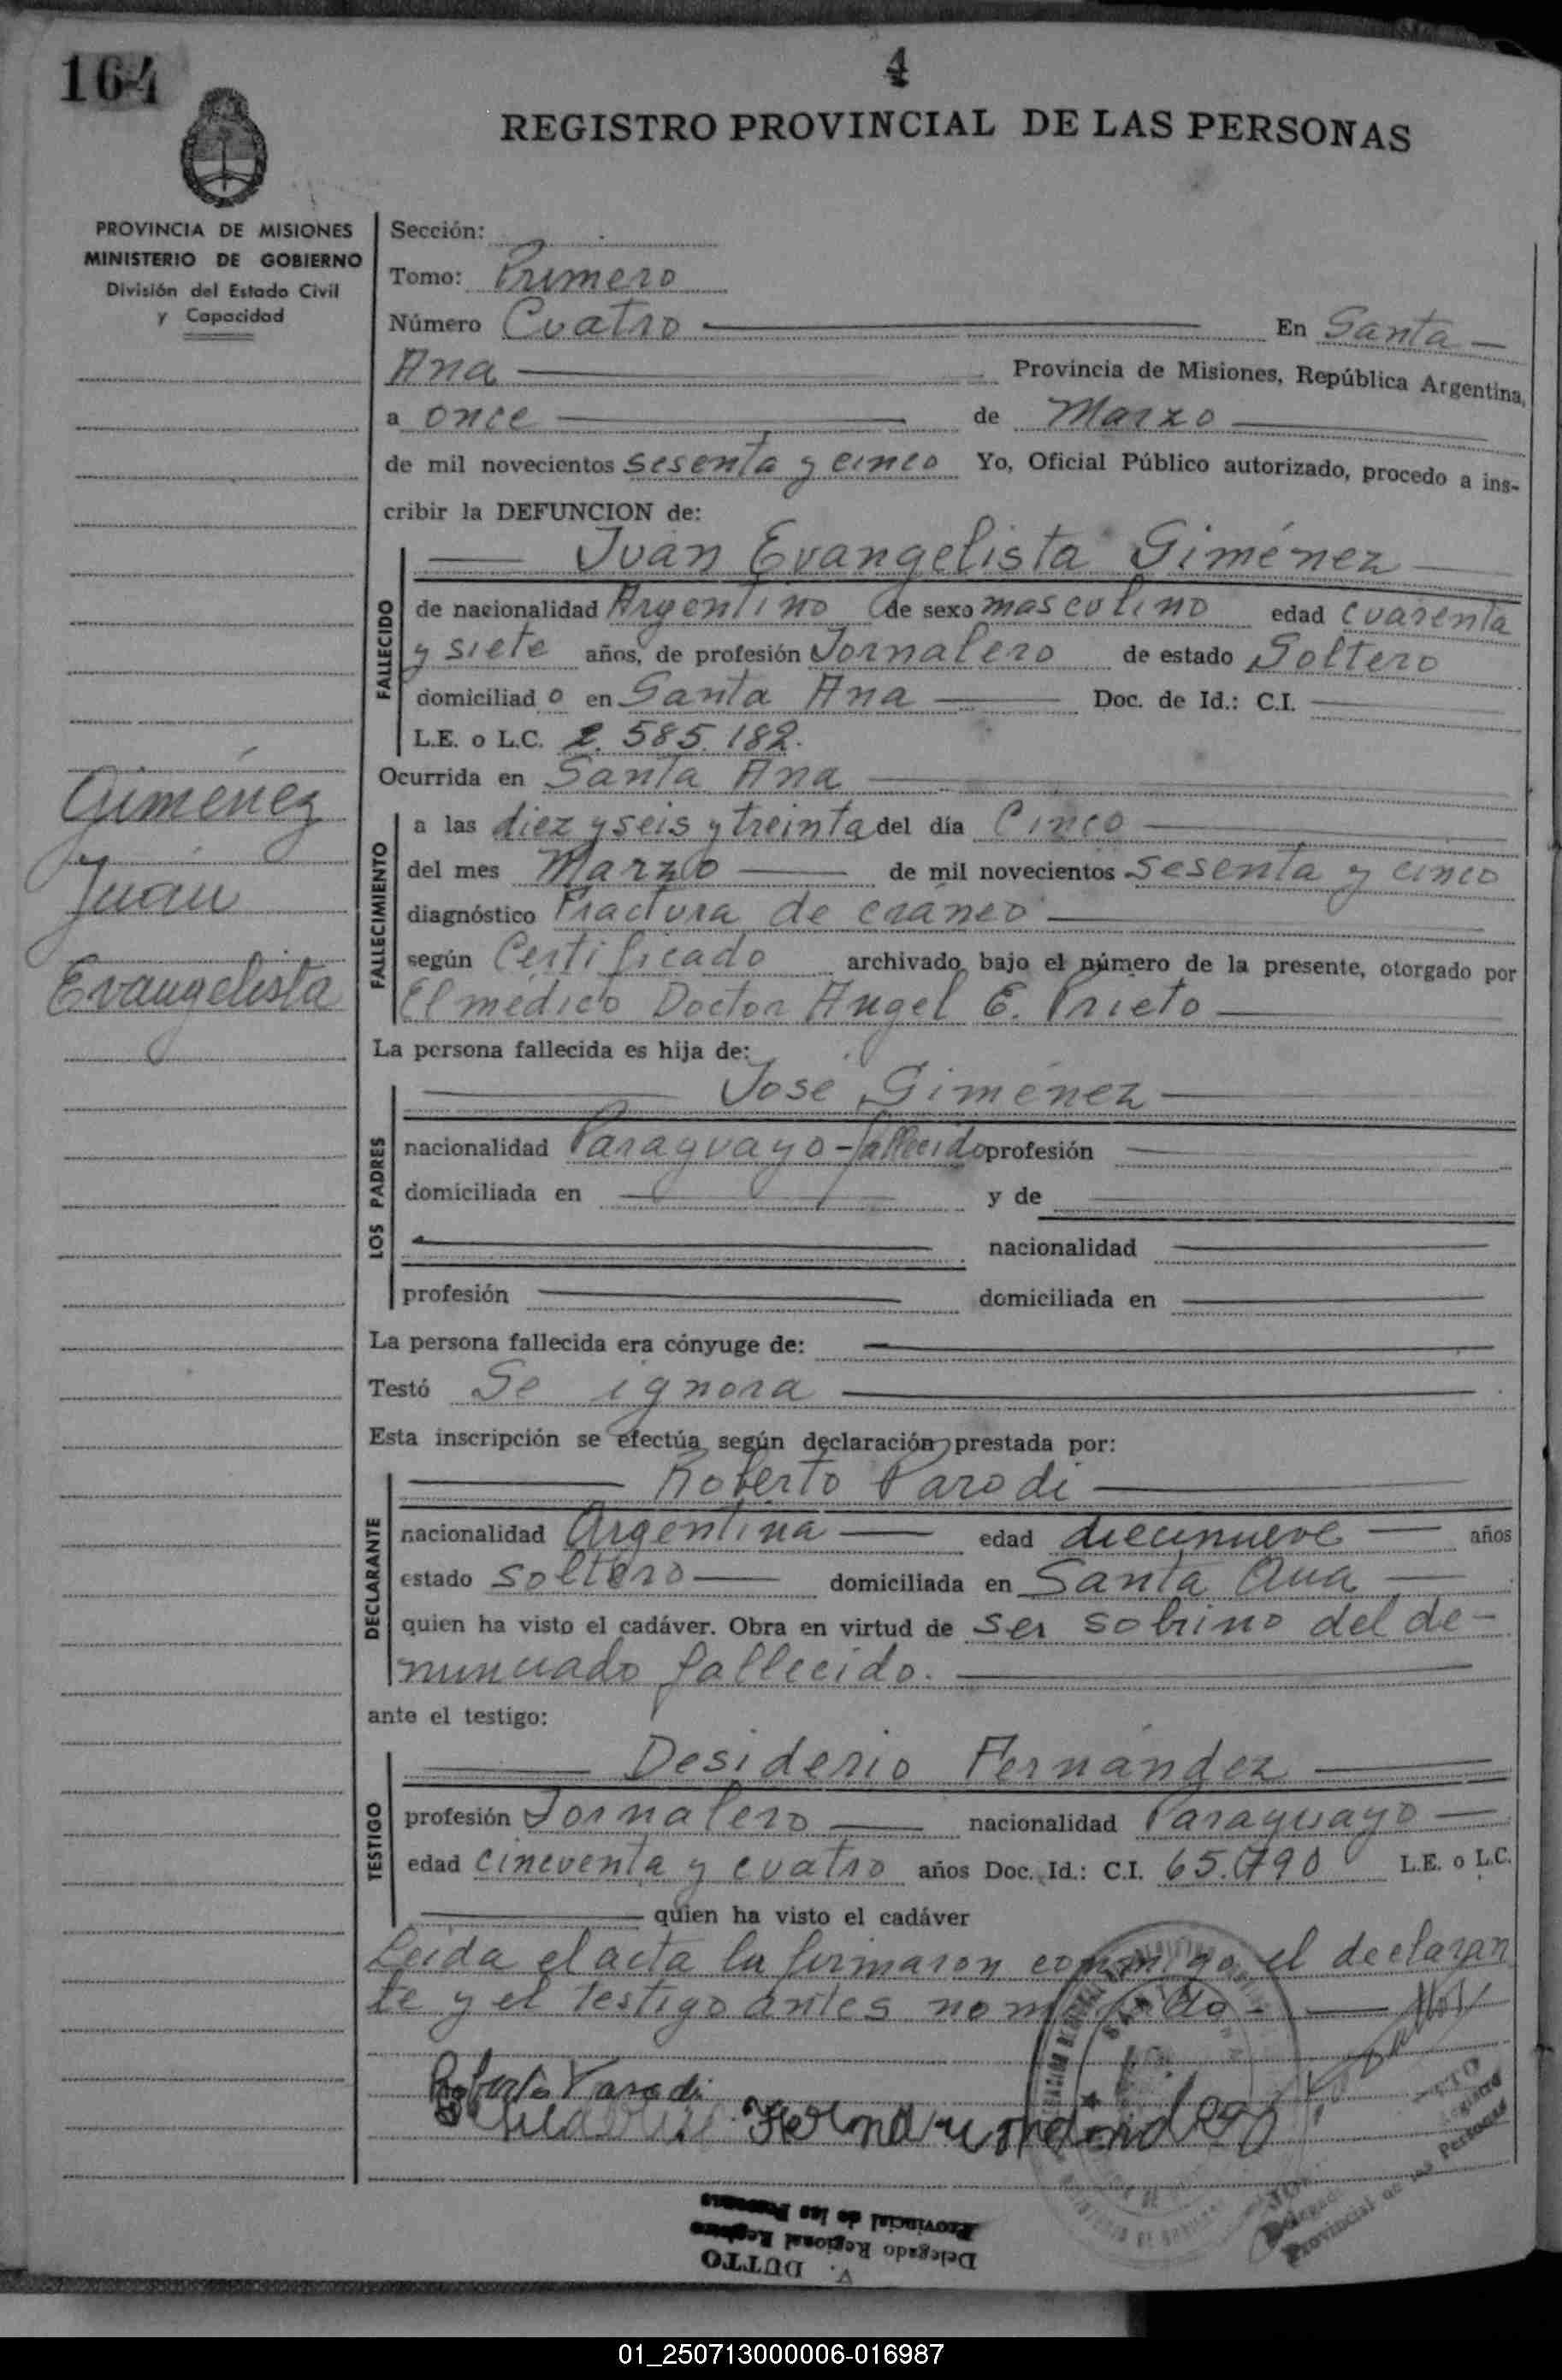 164
4
REGISTRO PROVINCIAL DE LAS PERSONAS
PROVINCIA DE MISIONES
MINISTERIO DE GOBIERNO
División del Estado Civil
y Capacidad
Giménez
Juan
Evangelista
Sección:
Tomo: Primero
Número Cuatro En Santa
Ana Provincia de Misiones, República Argentina,
a once de Marzo
de mil novecientos sesenta y cinco Yo, Oficial Público autorizado, procedo a ins-
cribir la DEFUNCION de:
FALLECIDO
Juan Evangelista Giménez
de nacionalidad Argentino de sexo masculino edad cuarenta
y siete años, de profesión Jornalero de estado Soltero
domiciliado en Santa Ana Doc. de Id.: C.I.
L.E. o L.C. 2.585.182.
Ocurrida en Santa Ana
FALLECIMIENTO
a las diez y seis y treinta del día Cinco
del mes Marzo de mil novecientos sesenta y cinco
diagnóstico Fractura de cráneo
según Certificado archivado bajo el número de la presente, otorgado por
El médico Doctor Angel E. Prieto
La persona fallecida es hija de:
LOS PADRES
José Giménez
nacionalidad Paraguayo-fallecido profesión
domiciliada en y de
nacionalidad
profesión domiciliada en
La persona fallecida era cónyuge de:
Testó Se ignora
Esta inscripción se efectúa según declaración prestada por:
DECLARANTE
Roberto Parodi
nacionalidad Argentina edad diecinueve años
estado soltero domiciliada en Santa Ana
quien ha visto el cadáver. Obra en virtud de ser sobrino del de-
nunciado fallecido.
ante el testigo:
TESTIGO
Desiderio Fernández
profesión Jornalero nacionalidad Paraguayo
edad cincuenta y cuatro años Doc. Id.: C.I. 65.790 L.E. o L.C.
quien ha visto el cadáver
Leida el acta la firmaron conmigo el declaran
te y el testigo antes nombrado
Roberto Parodi
V. DUTTO
Delegado Regional Registro
Provincial de las Personas
Provincial de las Personas
01_250713000006-016987